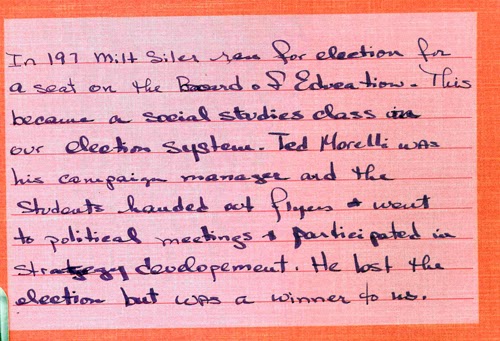 In 197 Milt Siler ran for election for
a seat on the Board of Education. This
became a social studies class in
our election system. Ted Morelli was
his campaign manager and the
Students handed out flyers & went
to political meetings & participated in
strategy developement. He lost the
election but was a winner to us.